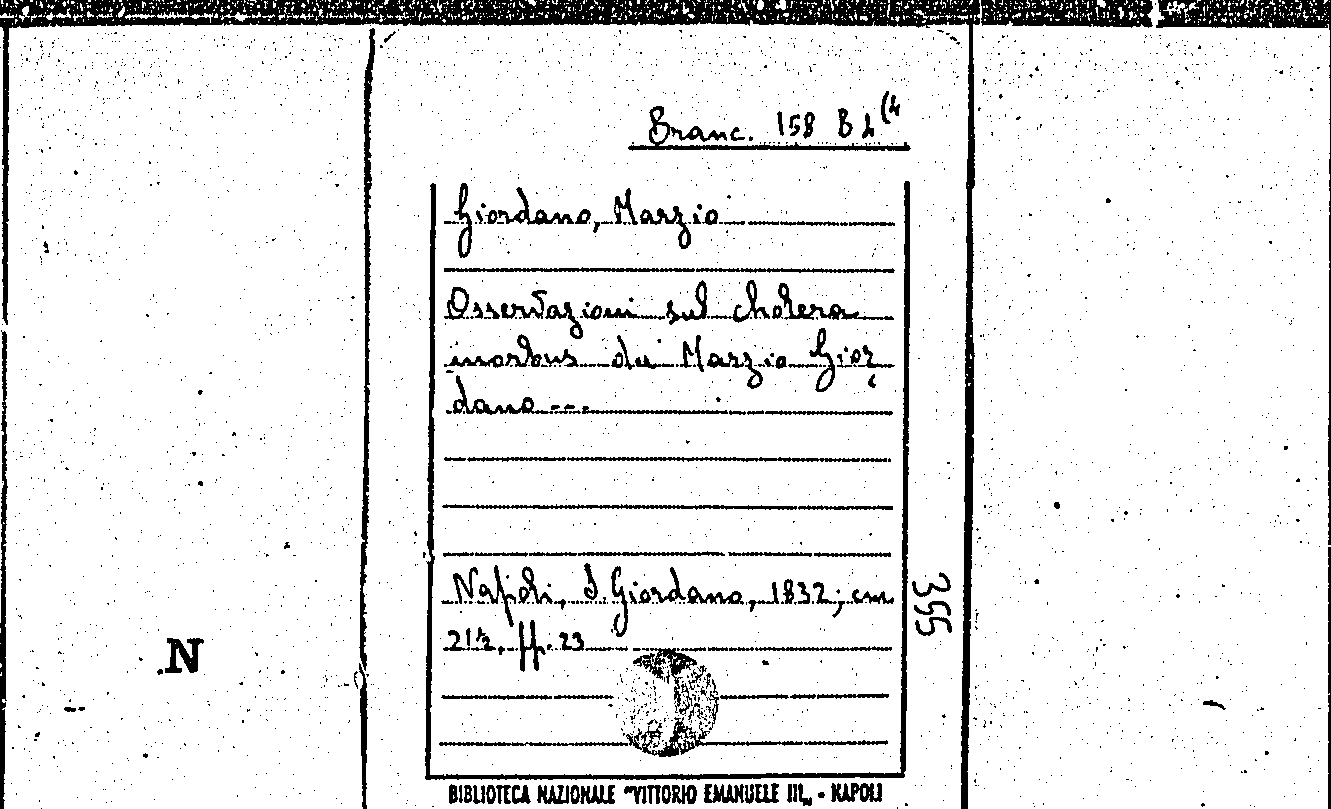 Branc. 158 B 2 (4
Giordano, Marzio
Osservazioni sul cholera
morbus di Marzio Gior
dano ---
Napoli, S. Giordano, 1832; cm
21½, pp. 23
355
N
BIBLIOTECA NAZIONALE "VITTORIO EMANUELE III„ - NAPOLI